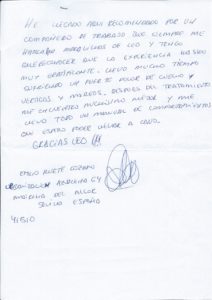 HE LLEGADO AQUI RECOMENDADO POR UN
COMPAÑERO DE TRABAJO QUE SIEMPRE ME
HABLABA MARAVILLAS DE LEO Y TENGO
QUE RECONOCER QUE LA EXPERIENCIA HA SIDO
MUY GRATIFICANTE. LLEVO MUCHO TIEMPO
SUFRIENDO UN FUERTE DOLOR DE CUELLO Y
VERTIGOS Y MAREOS, DESPUES DEL TRATAMIENTO
ME ENCUENTRO MUCHISIMO MEJOR Y ME
LLEVO TODO UN MANUAL DE COMPORTAMIENTO
QUE ESPERO PODER LLEVAR A CABO.
GRACIAS LEO
EMILIO
64
DEL ALCOR
SEVILLA ESPAÑA
41510